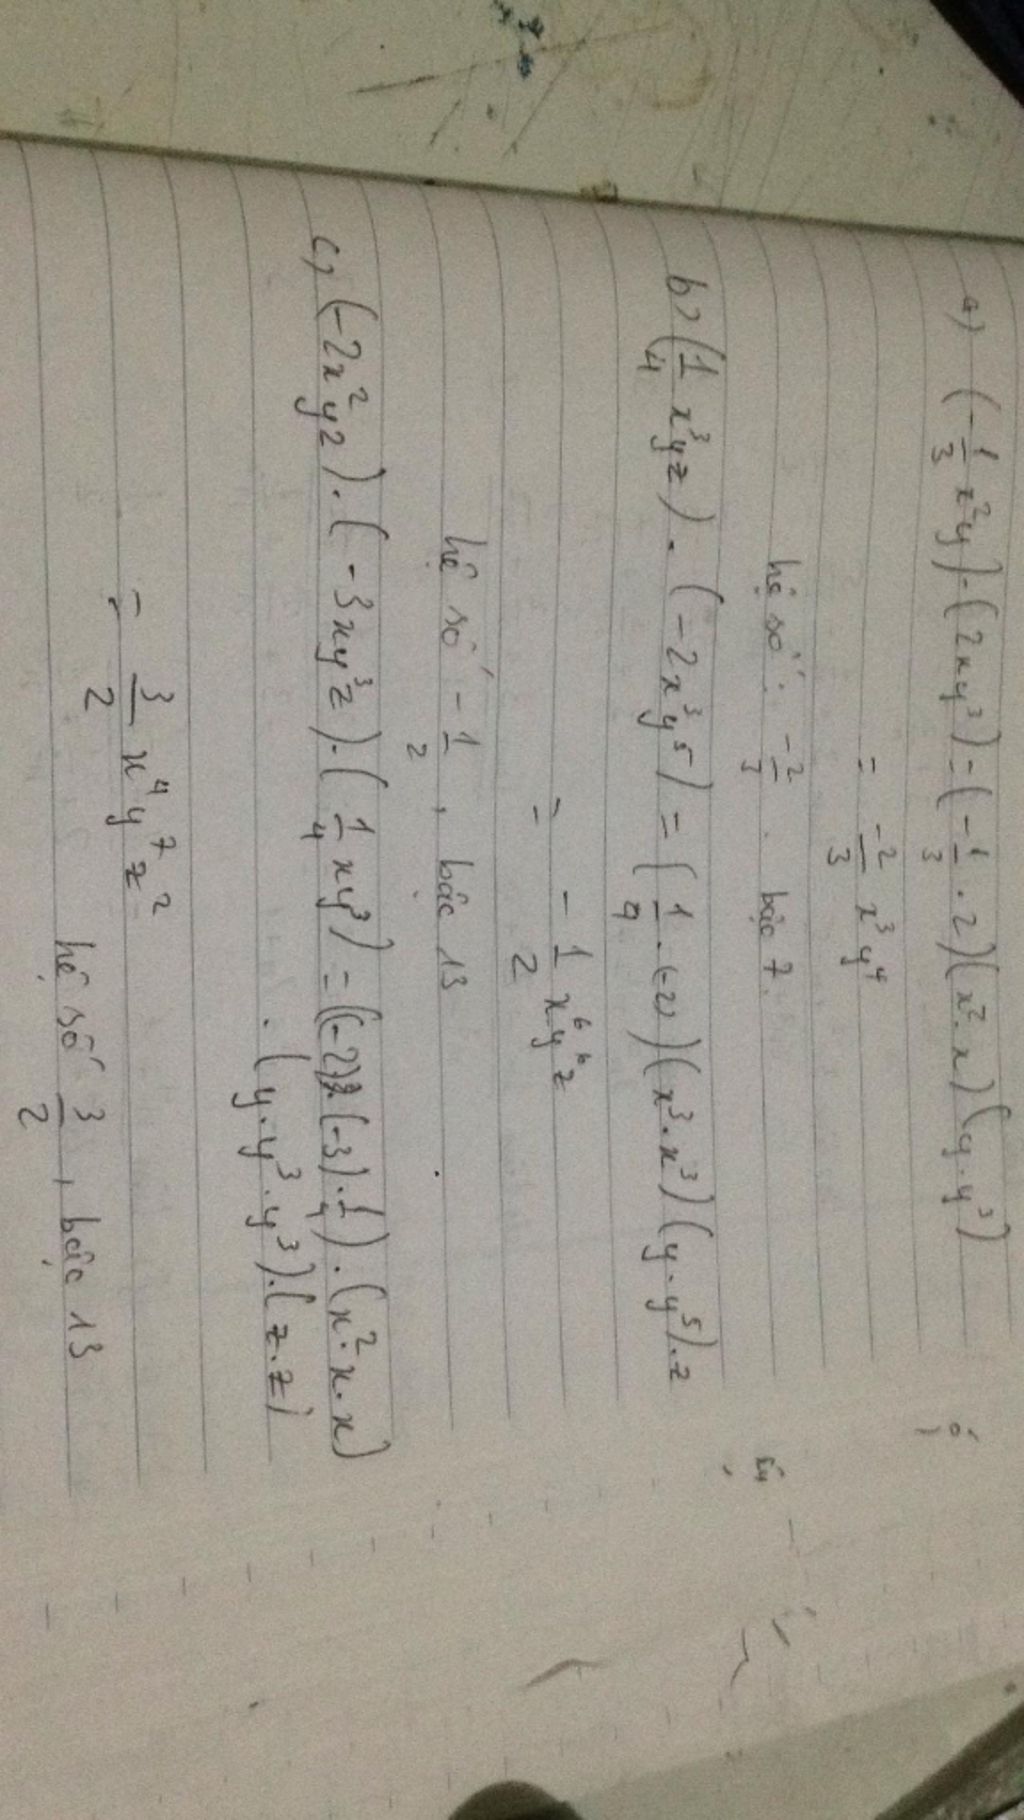 a) (-1/3 x²y).(2xy³) = (-1/3 . 2)(x².x)(y.y³)
= -2/3 x³y⁴
hệ số: -2/3 . bậc 7.
b) (1/4 x³yz).(-2x³y⁵) = (1/4.(-2))(x³.x³)(y.y⁵).z
= -1/2 x⁶y⁶z
hệ số -1/2, bậc 13
c) (-2x²yz).(-3xy³z).(1/4 xy³) = ((-2).(-3).1/4).(x².x.x)
.(y.y³.y³).(z.z)
= 3/2 x⁴y⁷z²
hệ số 3/2, bậc 13